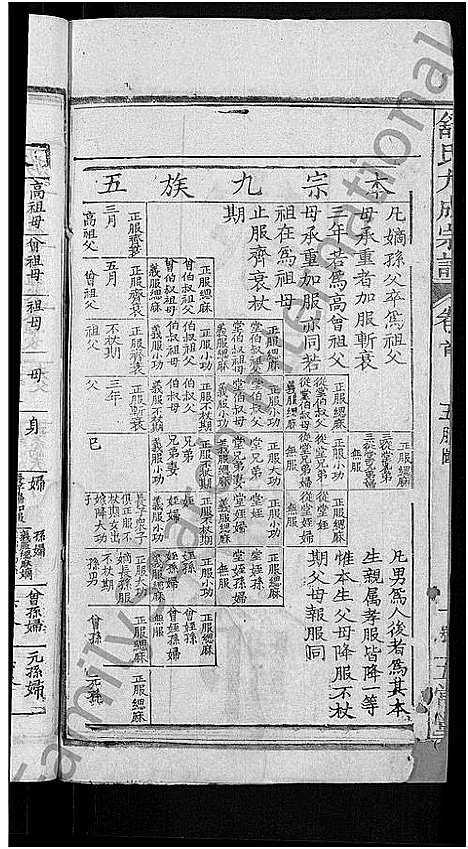 本宗九族五
凡嫡孫父卒為祖父
母承重者加服斬衰
三年若為高曾祖父
母承重加服亦同若
祖在為祖母
止服齊衰杖
期
凡男為人後者為其本
生親属孝服皆降一等
惟本生父母降服不杖
期父母報服同
正服緦麻
三從堂兄弟
三從堂兄弟婦
無服
正服緦麻
從堂伯叔父
從堂伯叔母
義服緦麻
正服小功
從堂兄弟
從堂兄弟婦
無服
正服緦麻
從堂姪
從堂姪婦
無服
正服緦麻
堂伯叔祖父
堂伯叔祖母
義服緦麻
正服小功
堂伯叔父
堂伯叔母
義服小功
正服大功
堂兄弟
堂兄弟妻
義服緦麻
正服小功
堂姪
堂姪婦
義服緦麻
正服緦麻
堂姪孫
堂姪孫婦
無服
正服緦麻
曾伯叔祖父
曾伯叔祖母
義服緦麻
正服小功
伯叔祖父
伯叔祖母
義服小功
正服不杖期
伯叔父
伯叔母
義服不杖期
正服不杖期
兄弟
兄弟妻
義服小功
正服不杖期
姪
姪婦
正服小功
姪孫
姪孫婦
義服緦麻
正服緦麻
曾姪孫
曾姪孫婦
無服
正服齊衰
三月
高祖父
正服齊衰
五月
曾祖父
正服齊衰
不杖期
祖父
正服斬衰
三年
父
己
長子眾子
俱正服不
杖期女出
嫁降大功
子
正服大功
嫡孫正服
不杖期
孫男
正服緦麻
曾孫
正服緦麻
元孫
高祖母
曾祖母
祖母
母
身
婦
孫婦
曾孫婦
元孫婦
舒氏九成宗譜
卷首
五服圖
Family Search International